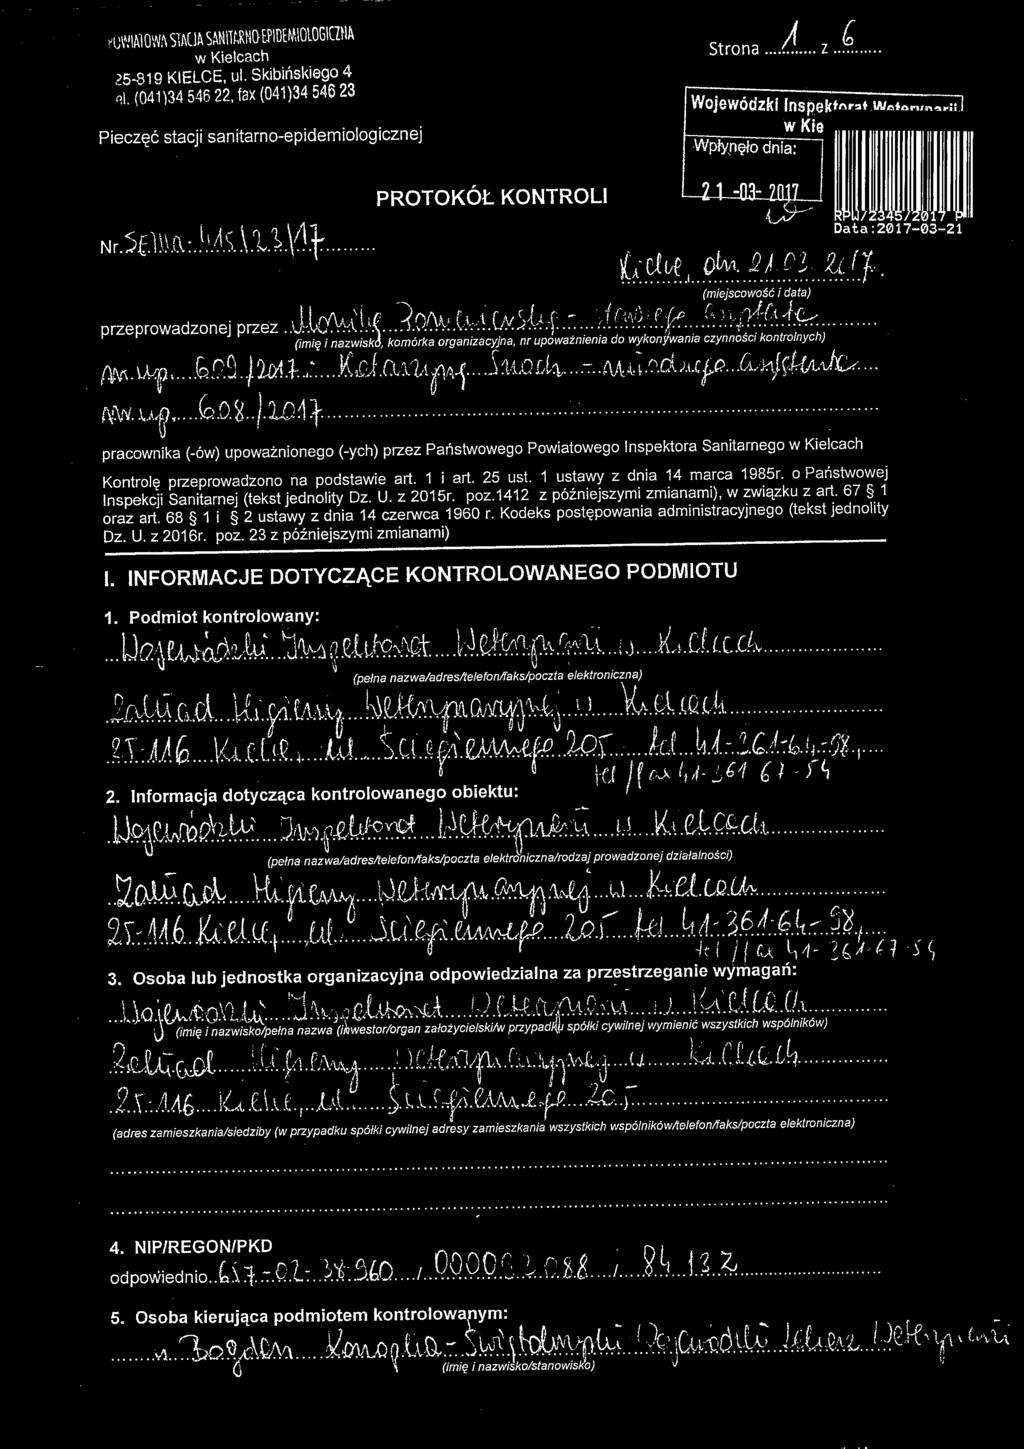 POWIATOWA STACJA SANITARNO EPIDEMIOLOGICZNA
w Kielcach
25-819 KIELCE, ul. Skibińskiego 4
el. (041)34 546 22, fax (041)34 546 23
Pieczęć stacji sanitarno-epidemiologicznej
Strona ...1... z ...6...
Wojewódzki Inspektorat Weterynarii
w Kie
Wpłynęło dnia:
21 -03- 2017
RPW/2345/2017 P
Data:2017-03-21
PROTOKÓŁ KONTROLI
Nr.
Kielce, dn. 21.03.2017.
(miejscowość i data)
przeprowadzonej przez
(imię i nazwisko, komórka organizacyjna, nr upoważnienia do wykonywania czynności kontrolnych)
nr. up. 609/2017; Katarzynę - młodszego asystenta
nr. up. 608/2017
pracownika (-ów) upoważnionego (-ych) przez Państwowego Powiatowego Inspektora Sanitarnego w Kielcach
Kontrolę przeprowadzono na podstawie art. 1 i art. 25 ust. 1 ustawy z dnia 14 marca 1985r. o Państwowej
Inspekcji Sanitarnej (tekst jednolity Dz. U. z 2015r. poz.1412 z późniejszymi zmianami), w związku z art. 67 § 1
oraz art. 68 § 1 i § 2 ustawy z dnia 14 czerwca 1960 r. Kodeks postępowania administracyjnego (tekst jednolity
Dz. U. z 2016r. poz. 23 z późniejszymi zmianami)
I. INFORMACJE DOTYCZĄCE KONTROLOWANEGO PODMIOTU
1. Podmiot kontrolowany:
Wojewódzki Inspektorat Weterynarii w Kielcach
(pełna nazwa/adres/telefon/faks/poczta elektroniczna)
Zakład Higieny Weterynaryjnej w Kielcach
25-116 Kielce, ul. Ściegiennego 205 tel. 41-361-64-98,
tel//fax 41-361 67-54
2. Informacja dotycząca kontrolowanego obiektu:
Wojewódzki Inspektorat Weterynarii w Kielcach
(pełna nazwa/adres/telefon/faks/poczta elektroniczna/rodzaj prowadzonej działalności)
Zakład Higieny Weterynaryjnej w Kielcach
25-116 Kielce, ul. Ściegiennego 205 tel 41-361-64-98,
tel//fax 41-361-67-54
3. Osoba lub jednostka organizacyjna odpowiedzialna za przestrzeganie wymagań:
Wojewódzki Inspektorat Weterynarii w Kielcach
(imię i nazwisko/pełna nazwa (inwestor/organ założycielski/w przypadku spółki cywilnej wymienić wszystkich wspólników)
Zakład Higieny Weterynaryjnej w Kielcach
25-116 Kielce, ul. Ściegiennego 205
(adres zamieszkania/siedziby (w przypadku spółki cywilnej adresy zamieszkania wszystkich wspólników/telefon/faks/poczta elektroniczna)
4. NIP/REGON/PKD
odpowiednio..657-02-38-960 / 84 13 Z
5. Osoba kierująca podmiotem kontrolowanym:
Bogdan Konopka - Świętokrzyski Wojewódzki Lekarz Weterynarii
(imię i nazwisko/stanowisko)